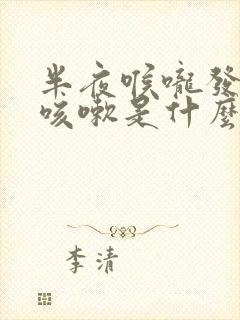 半夜喉嚨發
咳嗽是什麼
李清